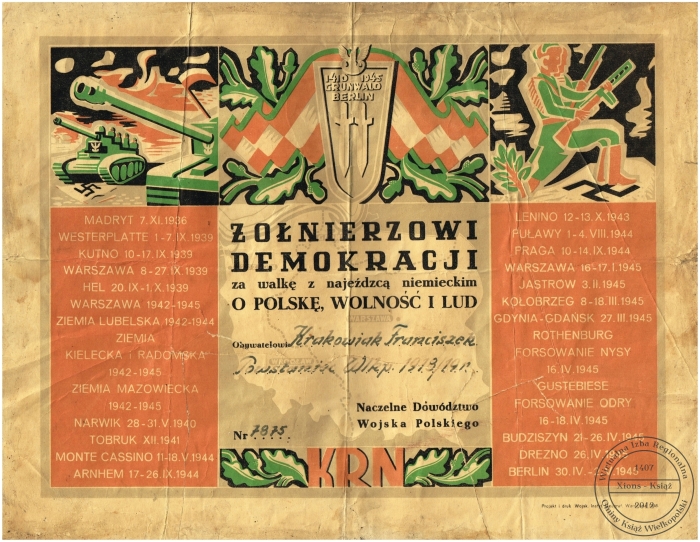 1410 1945
GRUNWALD
BERLIN
MADRYT 7.XI.1936
WESTERPLATTE 1-7.IX.1939
KUTNO 10-17.IX.1939
WARSZAWA 8-27.IX.1939
HEL 20.IX-1.X.1939
WARSZAWA 1942-1945
ZIEMIA LUBELSKA 1942-1944
ZIEMIA
KIELECKA I RADOMSKA
1942-1945
ZIEMIA MAZOWIECKA
1942-1945
NARWIK 28-31.V.1940
TOBRUK XII.1941
MONTE CASSINO 11-18.V.1944
ARNHEM 17-26.IX.1944
ŻOŁNIERZOWI
DEMOKRACJI
za walkę z najeźdzcą niemieckim
O POLSKĘ, WOLNOŚĆ I LUD
WARSZAWA
Obywatelowi Krakowiak Franciszek
1913/14r.
Naczelne Dowództwo
Wojska Polskiego
Nr 7875
KRN
LENINO 12-13.X.1943
PUŁAWY 1-4.VIII.1944
PRAGA 10-14.IX.1944
WARSZAWA 16-17.I.1945
JASTROW 3.II.1945
KOŁOBRZEG 8-18.III.1945
GDYNIA-GDAŃSK 27.III.1945
ROTHENBURG
FORSOWANIE NYSY
16.IV.1945
GUSTEBIESE
FORSOWANIE ODRY
16-18.IV.1945
BUDZISZYN 21-26.IV.1945
DREZNO 26.IV.
BERLIN 30.IV.- 1945
Wirtualna Izba Regionalna
1407
Xions - Książ
2012
Gminy Książ Wielkopolski
Projekt i druk Wojsk.